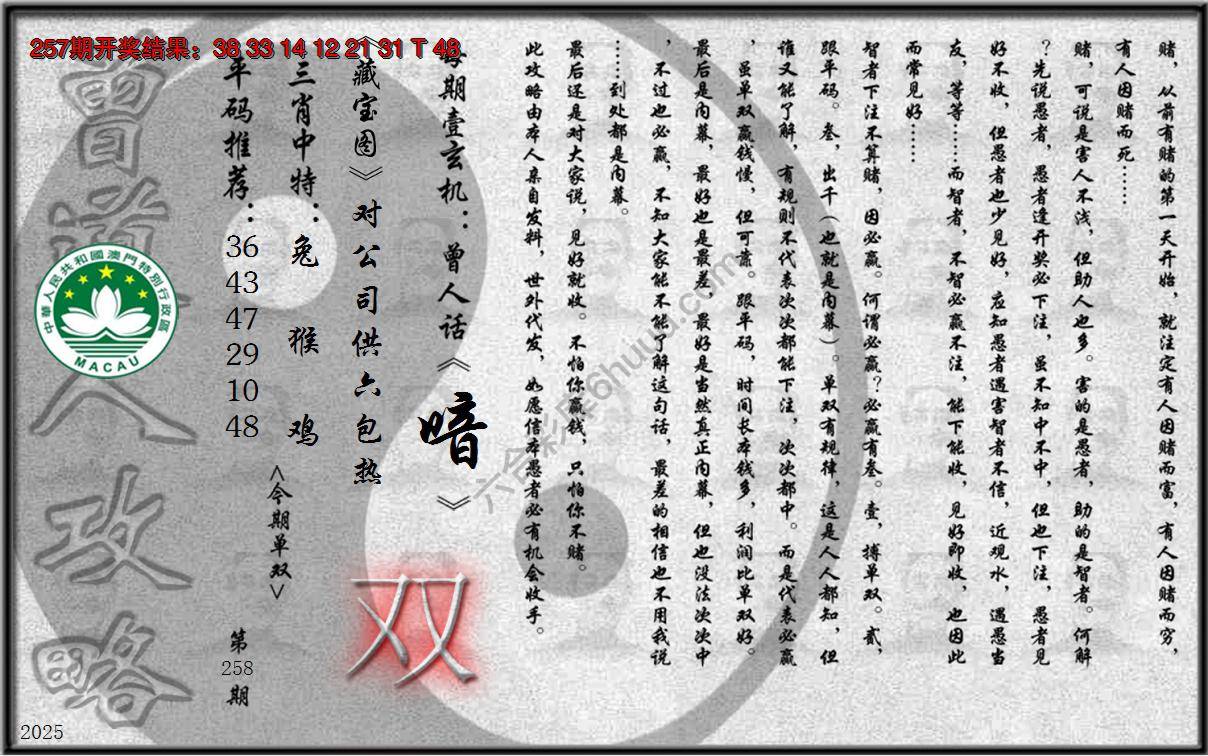 257期开奖结果：38 33 14 12 21 31 T 48
赌，从前有赌的第一天开始，就注定有人因赌而富，有人因赌而穷，
有人因赌而死……
赌，可说是害人不浅，但助人也多。害的是愚者，助的是智者。何解
？先说愚者，愚者逢开奖必下注，虽不知中不中，但也下注，愚者见
好不收，但愚者也少见好，应知愚者遇害智者不信，近观水，遇愚当
友，等等……而智者，不智必赢不注，能下能收，见好即收，也因此
而常见好……
智者下注不算赌，因必赢。何谓必赢？必赢有叁。壹，搏单双。贰，
跟平码。叁，出千（也就是内幕）。单双有规律，这是人人都知，但
谁又能了解，有规则不代表次次都能下注，次次都中。而是代表必赢
，虽单双赢钱慢，但可靠。跟平码，时间长本钱多，利润比单双好。
最后是内幕，最好也是最差，最好是当然真正内幕，但也没法次次中
，不过也必赢，不知大家能不能了解这句话，最差的相信也不用我说
……到处都是内幕。
最后还是对大家说，见好就收。不怕你赢钱，只怕你不赌。
此攻略由本人亲自发料，世外代发，如愿信本愚者必有机会收手。
每期壹玄机：曾人话《暗》
《藏宝图》对公司供六包热
双
三肖中特：兔 猴 鸡
<今期单双>
平码推荐：
36
43
47
29
10
48
第
258
期
曾道人攻略
中華人民共和國澳門特別行政區
MACAU
六合彩库6huuu.com
2025